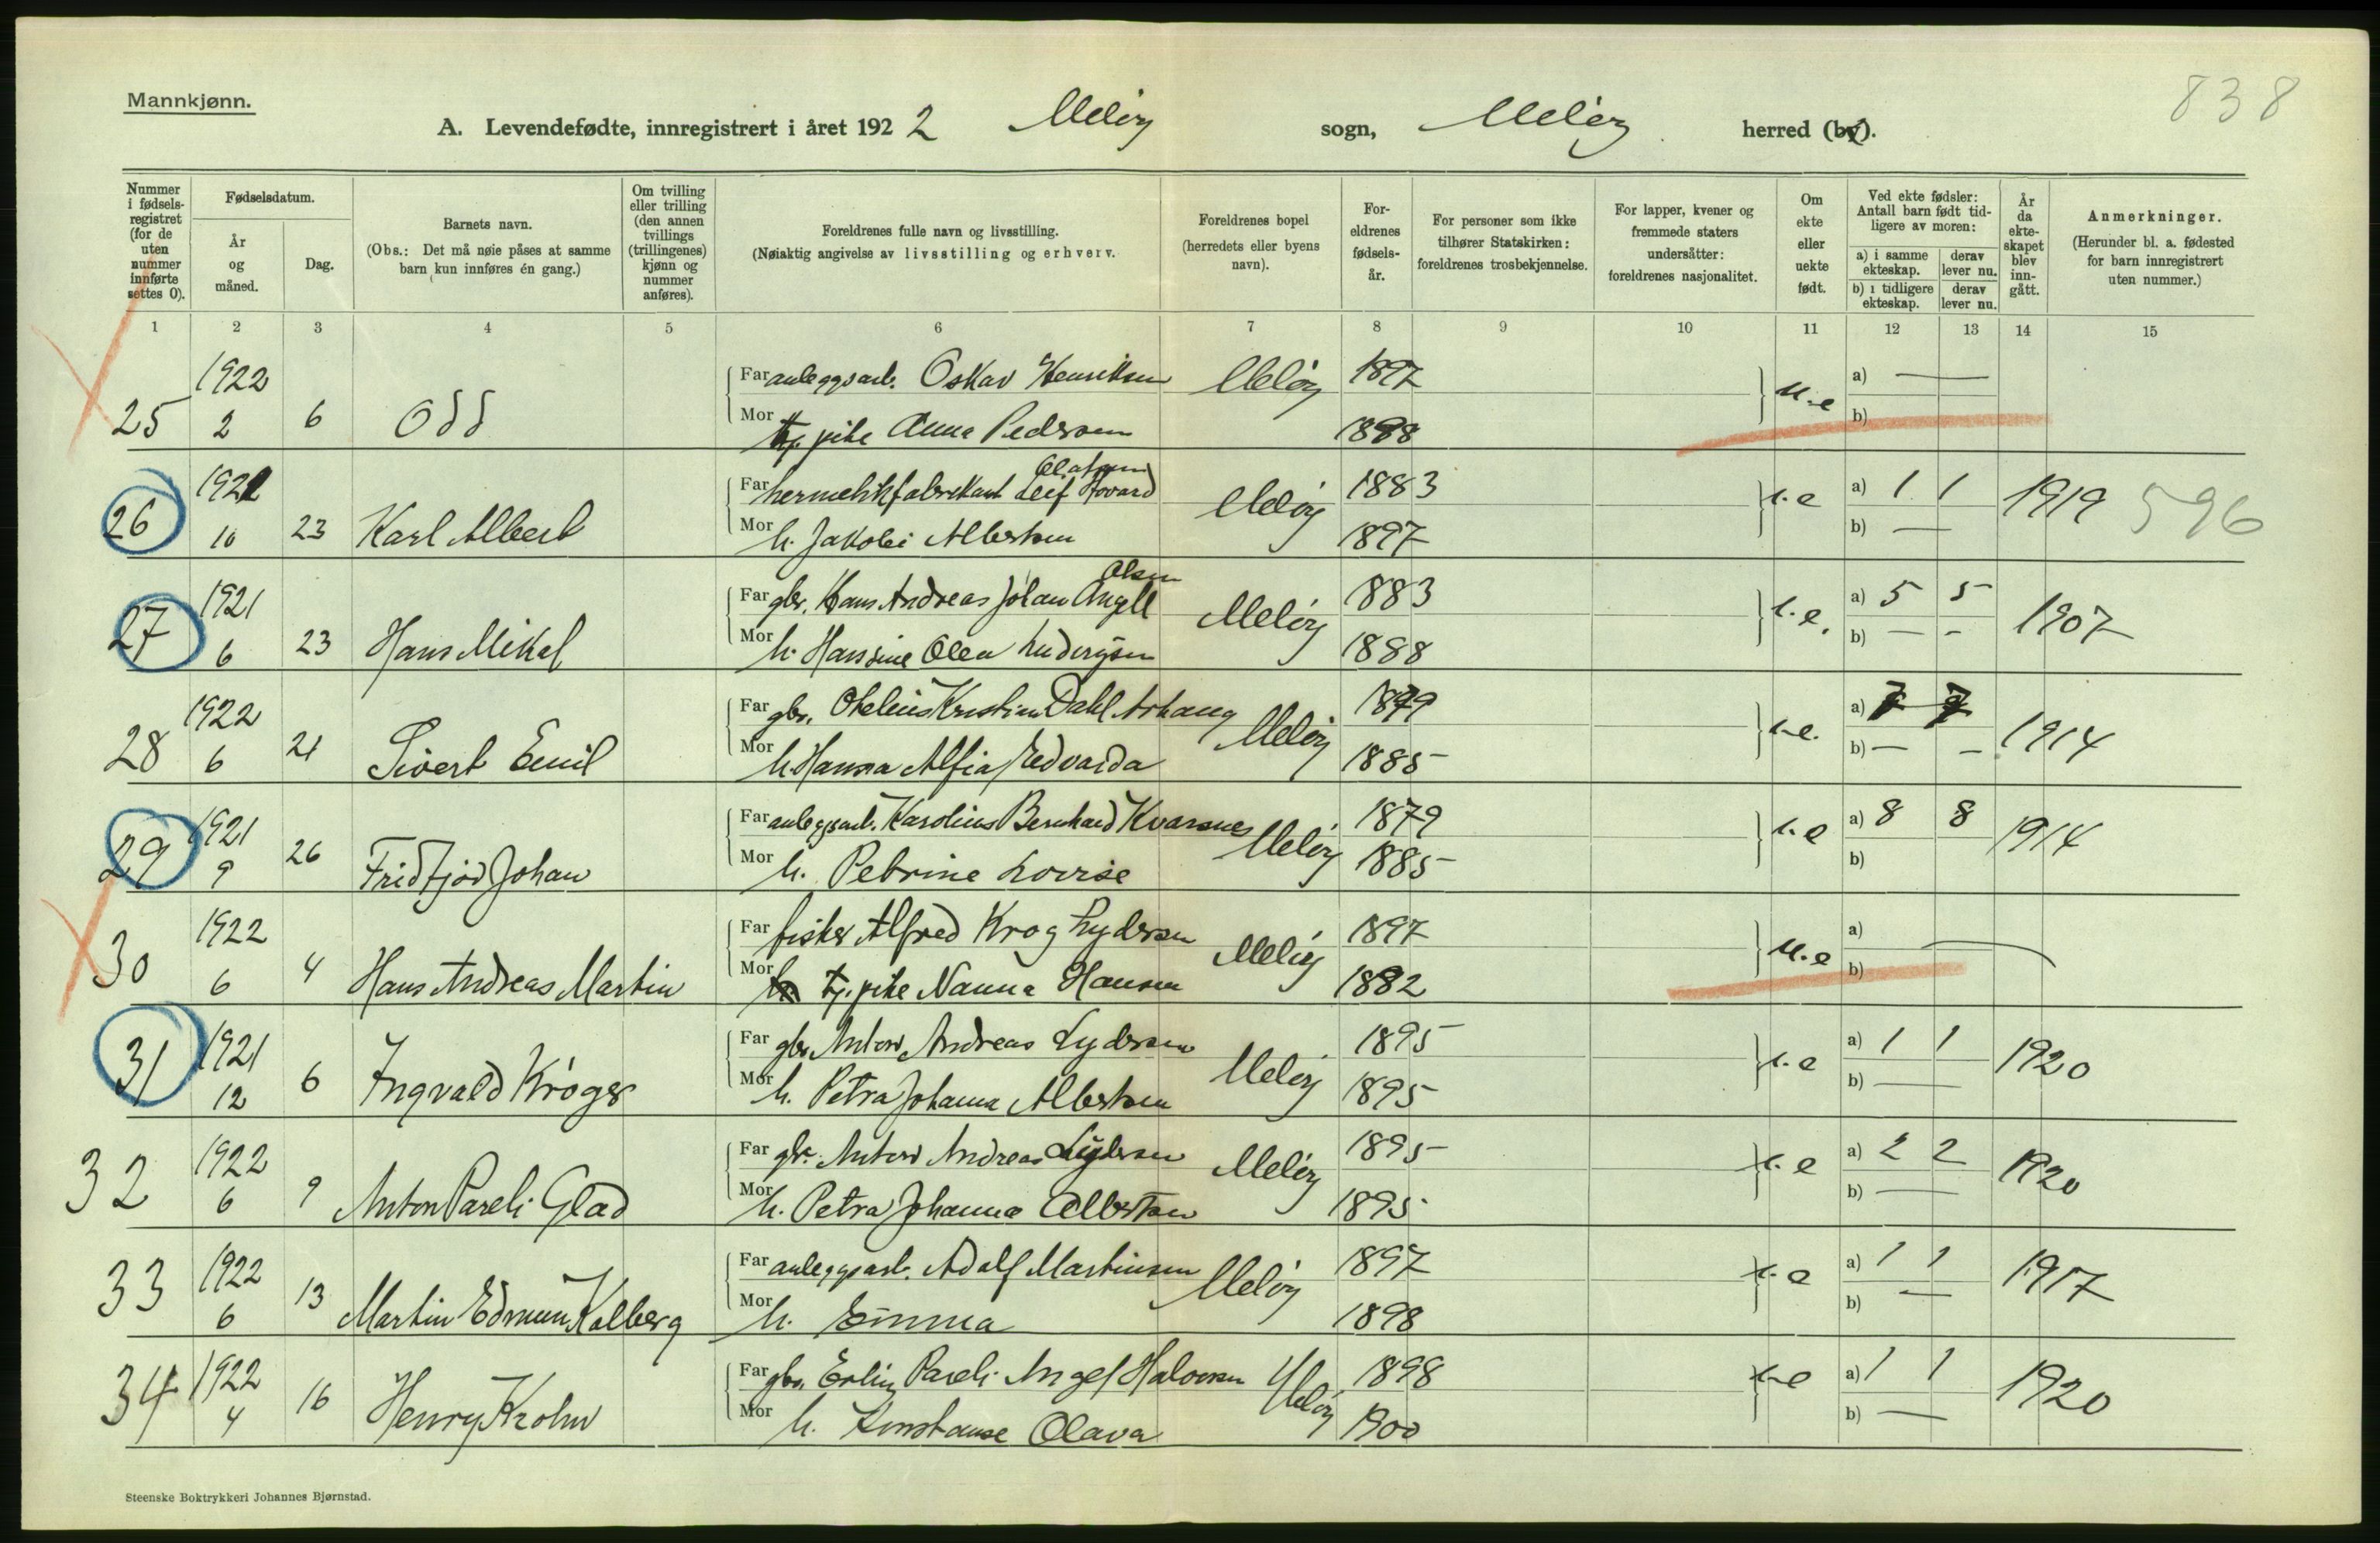 838
Mannkjønn.
A. Levendefødte, innregistrert i året 1922 Meløy sogn, Meløy herred (by).
Nummer i fødsels-registret (for de uten nummer innførte settes 0).
Fødselsdatum.
År og måned.
Dag.
Barnets navn.
(Obs.: Det må nøie påses at samme barn kun innføres én gang.)
Om tvilling eller trilling (den annen tvillings (trillingenes) kjønn og nummer anføres).
Foreldrenes fulle navn og livsstilling.
(Nøiaktig angivelse av livsstilling og erhverv.
Foreldrenes bopel (herredets eller byens navn).
For-eldrenes fødsels-år.
For personer som ikke tilhører Statskirken: foreldrenes trosbekjennelse.
For lapper, kvener og fremmede staters undersåtter: foreldrenes nasjonalitet.
Om ekte eller uekte født.
Ved ekte fødsler: Antall barn født tid-ligere av moren:
a) i samme ekteskap.
derav lever nu.
b) i tidligere ekteskap.
derav lever nu.
År da ekte-skapet blev inn-gått.
Anmerkninger.
(Herunder bl. a. fødested for barn innregistrert uten nummer.)
1 2 3 4 5 6 7 8 9 10 11 12 13 14 15
1922 Far anleggsarb. Oskar Henriksen Meløy 1897 u.e a) —
25 2 6 Odd Mor tj. pike Anna Pedersen 1898 b)
1921 Far hermetikfabrikant Leif Hovard Olafsen Meløy 1883 e a) 1 1 1919 596
26 10 23 Karl Albert Mor h. Jakobi Albertsen 1897 b) —
1921 Far gbr. Hans Andreas Johan Angell Olsen Meløy 1883 e. a) 5 5 1907
27 6 23 Hans Mikal Mor h. Hansine Olea 1888 b) — -
1922 Far gbr. Kristian Dahl Meløy e. a) 7 7 1914
28 6 21 Sivert Emil Mor h. Hanna Alfia Edvarda 1885 b) — —
1921 Far anleggsarb. Karolius Bernhard Kvarsnes Meløy 1879 e a) 8 8 1914
29 9 26 Fridtjov Johan Mor h. Petrine Lovise 1885 b)
1922 Far fisker Alfred Krog Lydersen Meløy 1897 u.e a)
30 6 4 Hans Andreas Martin Mor tj. pike Nanna Hansen 1882 b)
1921 Far gbr Anton Andreas Lydersen Meløy 1895 e a) 1 1 1920
31 12 6 Ingvald Krøger Mor h. Petra Johanna Albertsen 1895 b) —
1922 Far gbr. Anton Andreas Lydersen Meløy 1895 e a) 2 2 1920
32 6 9 Anton Pareli Glad Mor h. Petra Johanna Albertsen 1895 b) —
1922 Far anleggsarb. Adolf Martinsen Meløy 1897 e a) 1 1 1917
33 6 13 Martin Edmun Kalberg Mor h. Emma 1898 b) —
1922 Far gbr. Erling Pareli Angel Halvorsen Meløy 1898 e a) 1 1 1920
34 4 16 Henry Krohn Mor h. Konstanse Olava 1900 b) —
Steenske Boktrykkeri Johannes Bjørnstad.